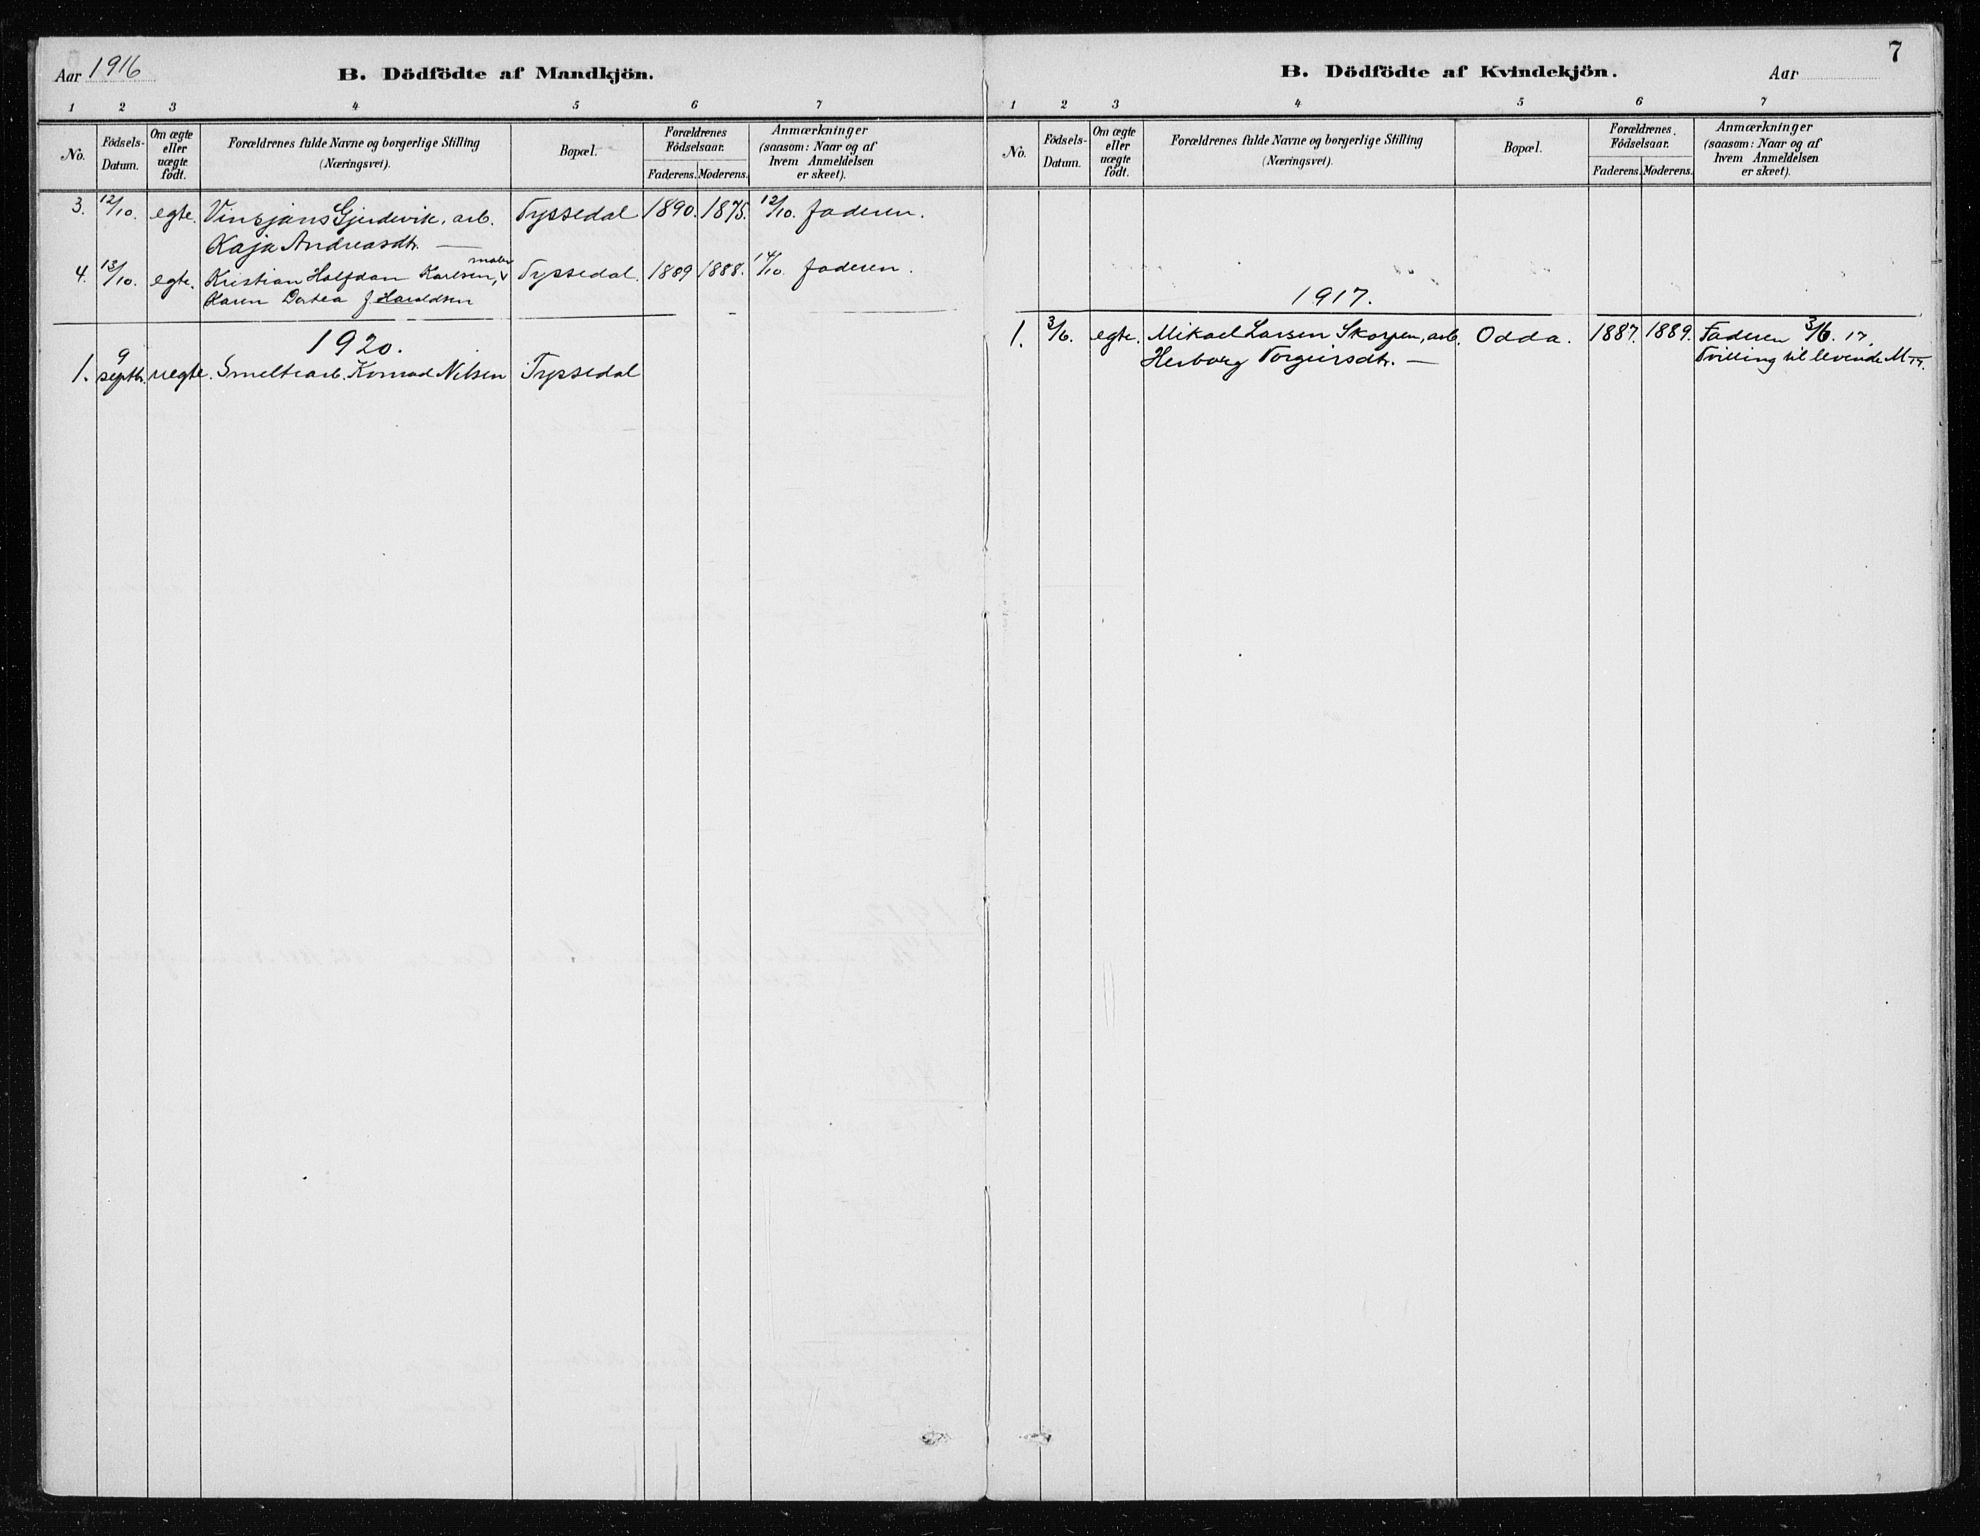 Aar 1916
B. Dödfödte af Mandkjön.
1 2 3 4 5 6 7
No.
Födsels-Datum.
Om ægte eller uægte födt.
Forældrenes fulde Navne og borgerlige Stilling (Næringsvei).
Bopæl.
Forældrenes Födselsaar.
Faderens. Moderens.
Anmærkninger (saasom: Naar og af hvem Anmeldelsen er skeet).
3. 12/10. egte. Vinsjans Gjerdevik, arb. Tyssedal 1890. 1875. 12/10. faderen.
Kaja Andreasdtr. —
4. 13/10. egte. Kristian Halfdan Karlsen, maler Tyssedal 1889 1888. 14/10. faderen.
Karen Dortea f. Haraldsen
1920.
1. 9 septbr. uegte. Smeltearb. Konrad Nilsen Tyssedal
7
B. Dödfödte af Kvindekjön.
Aar
1 2 3 4 5 6 7
No.
Födsels-Datum.
Om ægte eller uægte födt.
Forældrenes fulde Navne og borgerlige Stilling (Næringsvei).
Bopæl.
Forældrenes Födselsaar.
Faderens. Moderens.
Anmærkninger (saasom: Naar og af hvem Anmeldelsen er skeet).
1917.
1. 3/6. egte. Mikael Larsen Skorpen, arb. Odda. 1887. 1889. Faderen 3/6. 17.
Herborg Torgeirsdtr. — Tvilling til levende M